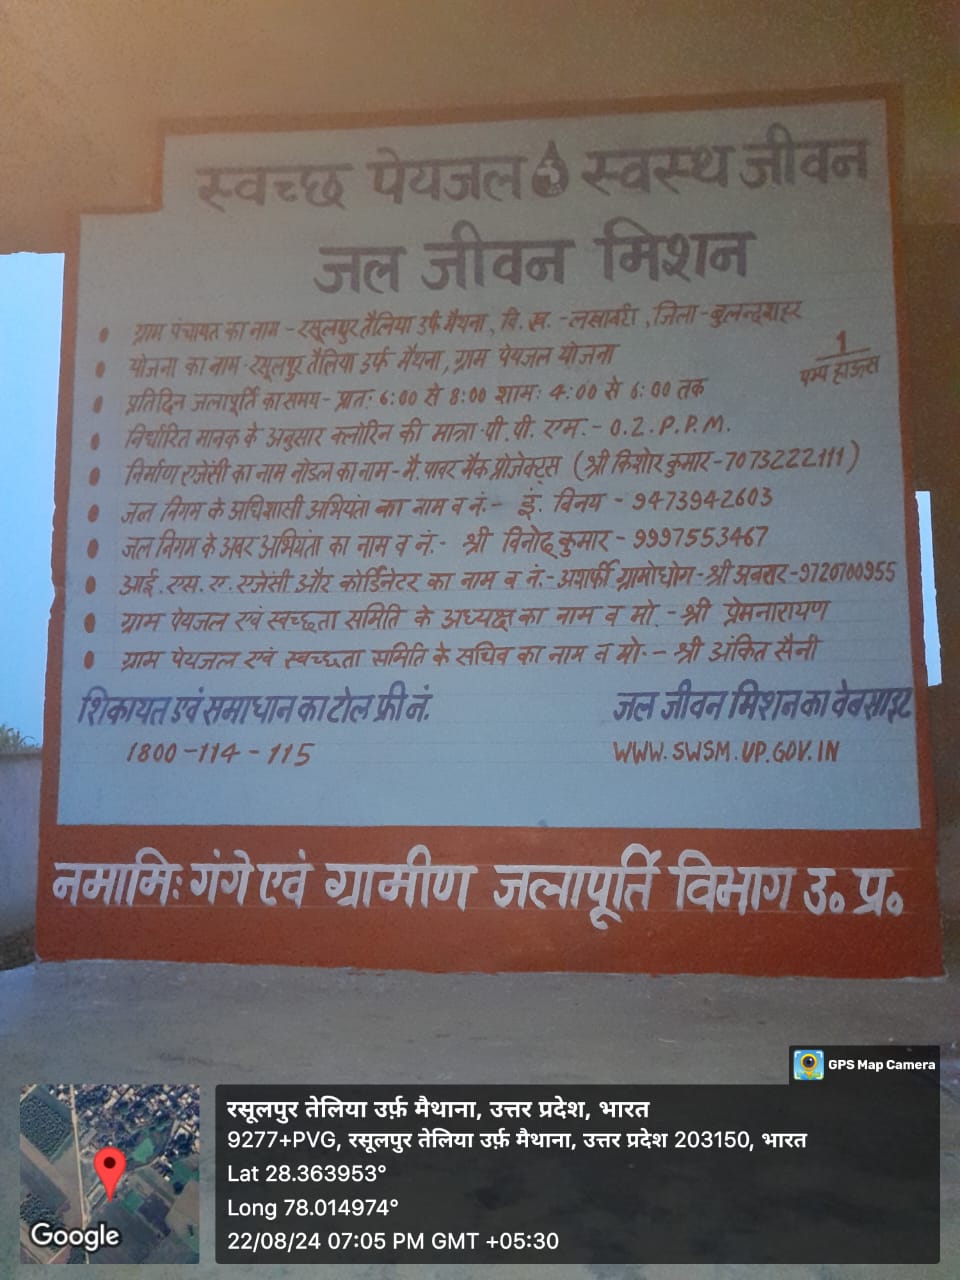 स्वच्छ पेयजल स्वस्थ जीवन
जल जीवन मिशन
ग्राम पंचायत का नाम - रसूलपुर तैलिया उर्फ मैथना, वि. ख. - लखावटी, जिला - बुलन्दशहर
योजना का नाम - रसूलपुर तैलिया उर्फ मैथना, ग्राम पेयजल योजना
1
पम्प हाऊस
प्रतिदिन जलापूर्ति का समय - प्रातः 6:00 से 8:00 शामः 4:00 से 6:00 तक
निर्धारित मानक के अनुसार क्लोरिन की मात्रा पी. पी. एम. - 0.2. P.P.M.
निर्माण एजेंसी का नाम नोडल का नाम - मै. पावर मैक प्रोजेक्ट्स (श्री किशोर कुमार - 7073222111)
जल निगम के अधिशासी अभियंता का नाम व नं. - इं. विनय - 9473942603
जल निगम के अवर अभियंता का नाम व नं. - श्री विनोद कुमार - 9997553467
आई. एस. ए. एजेंसी और कोर्डिनेटर का नाम व नं. - अशर्फी ग्रामोधोग - श्री अबसार - 9720700955
ग्राम पेयजल एवं स्वच्छता समिति के अध्यक्ष का नाम व मो. - श्री प्रेमनारायण
ग्राम पेयजल एवं स्वच्छता समिति के सचिव का नाम व मो. - श्री अंकित सैनी
शिकायत एवं समाधान का टोल फ्री नं.
1800-114-115
जल जीवन मिशन का वेबसाइट
WWW.SWSM.UP.GOV.IN
नमामिः गंगे एवं ग्रामीण जलापूर्ति विभाग उ० प्र०
GPS Map Camera
रसूलपुर तेलिया उर्फ़ मैथाना, उत्तर प्रदेश, भारत
9277+PVG, रसूलपुर तेलिया उर्फ़ मैथाना, उत्तर प्रदेश 203150, भारत
Lat 28.363953°
Long 78.014974°
22/08/24 07:05 PM GMT +05:30
Google